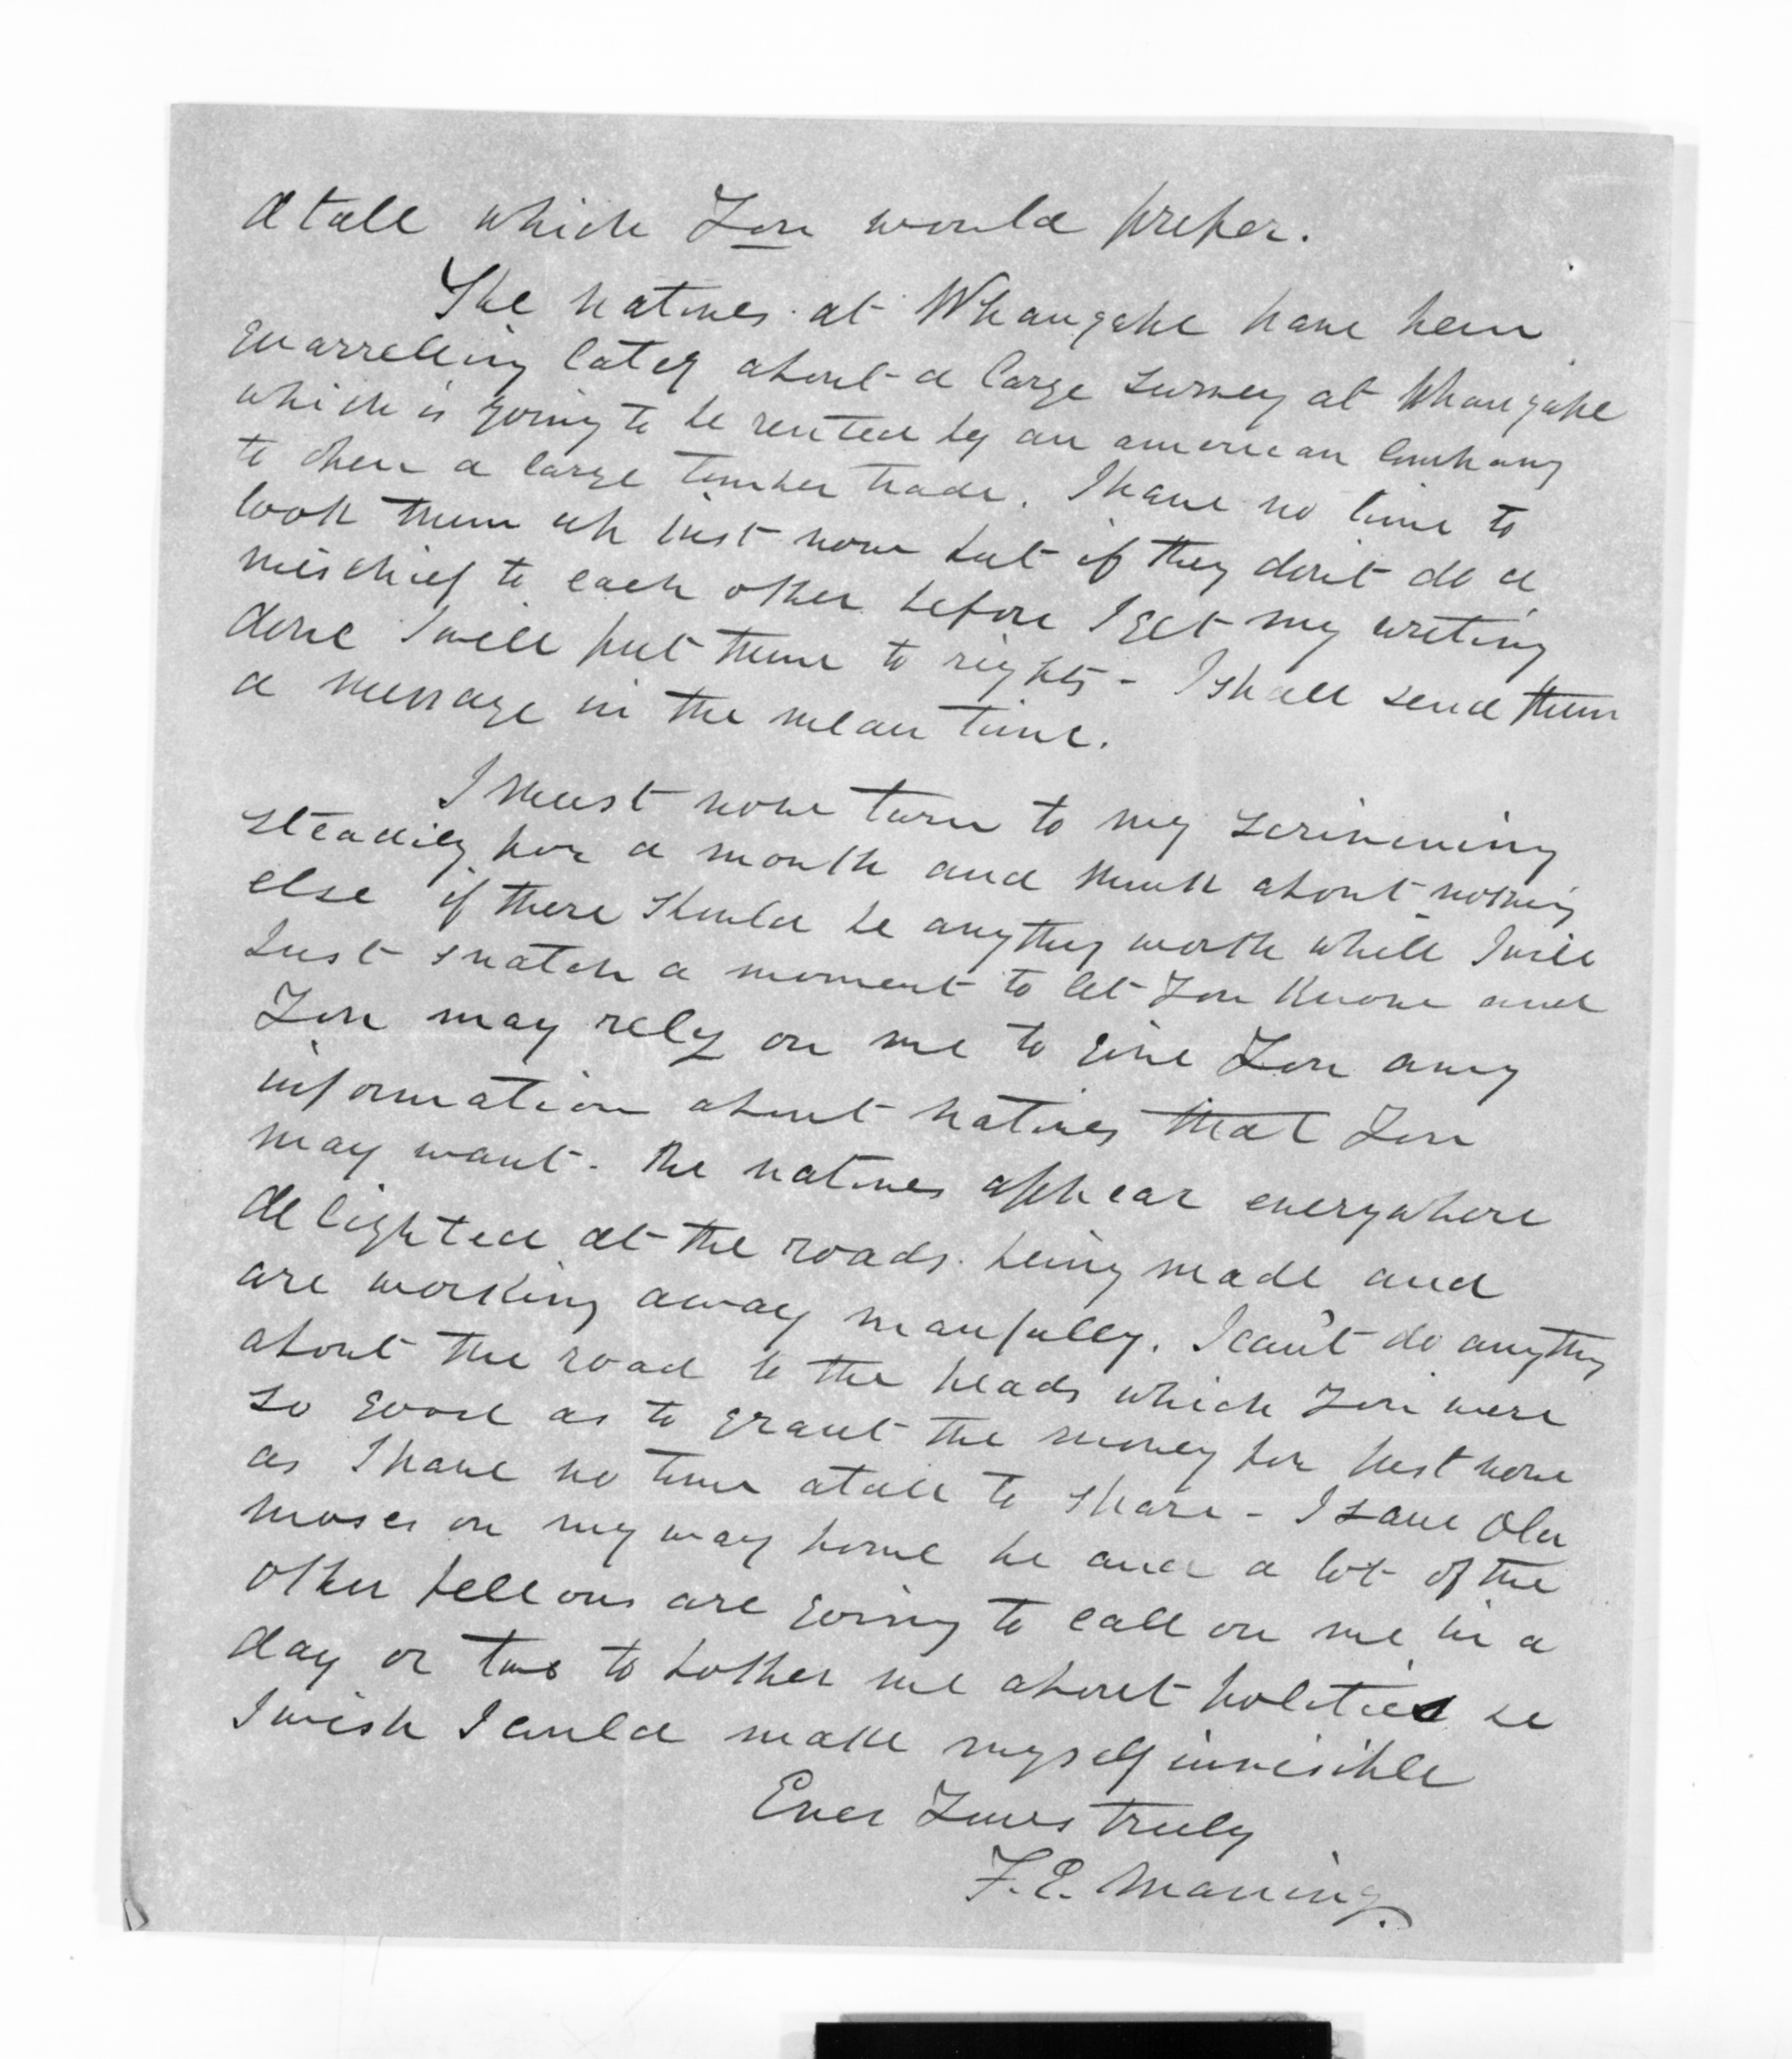 atall which You would prefer.
The natives at Whangape have been
quarreling lately about a large survey at Whangape
which is going to be rented by an american Company
to open a large timber trade. I have no time to
look them up just now but if they don't do a
mischief to each other before I get my writing
done I will put them to rights - I shall send them
a message in the mean time.
I must now turn to my scrivening
steadily for a month and think about nothing
else if there should be anything worth while I will
just snatch a moment to let You know and
You may rely on me to give You any
information about natives that You
may want. The natives appear everywhere
delighted at the roads being made and
are working away manfully. I can't do anything
about the road to the heads which You were
so good as to grant the money for just now
as I have no time atall to spare - I saw Old
Moses on my way home he and a lot of the
other fellows are going to call on me in a
day or two to bother me about politics &c
I wish I could make myself invisible
Ever Yours truly
F. E. Maning.